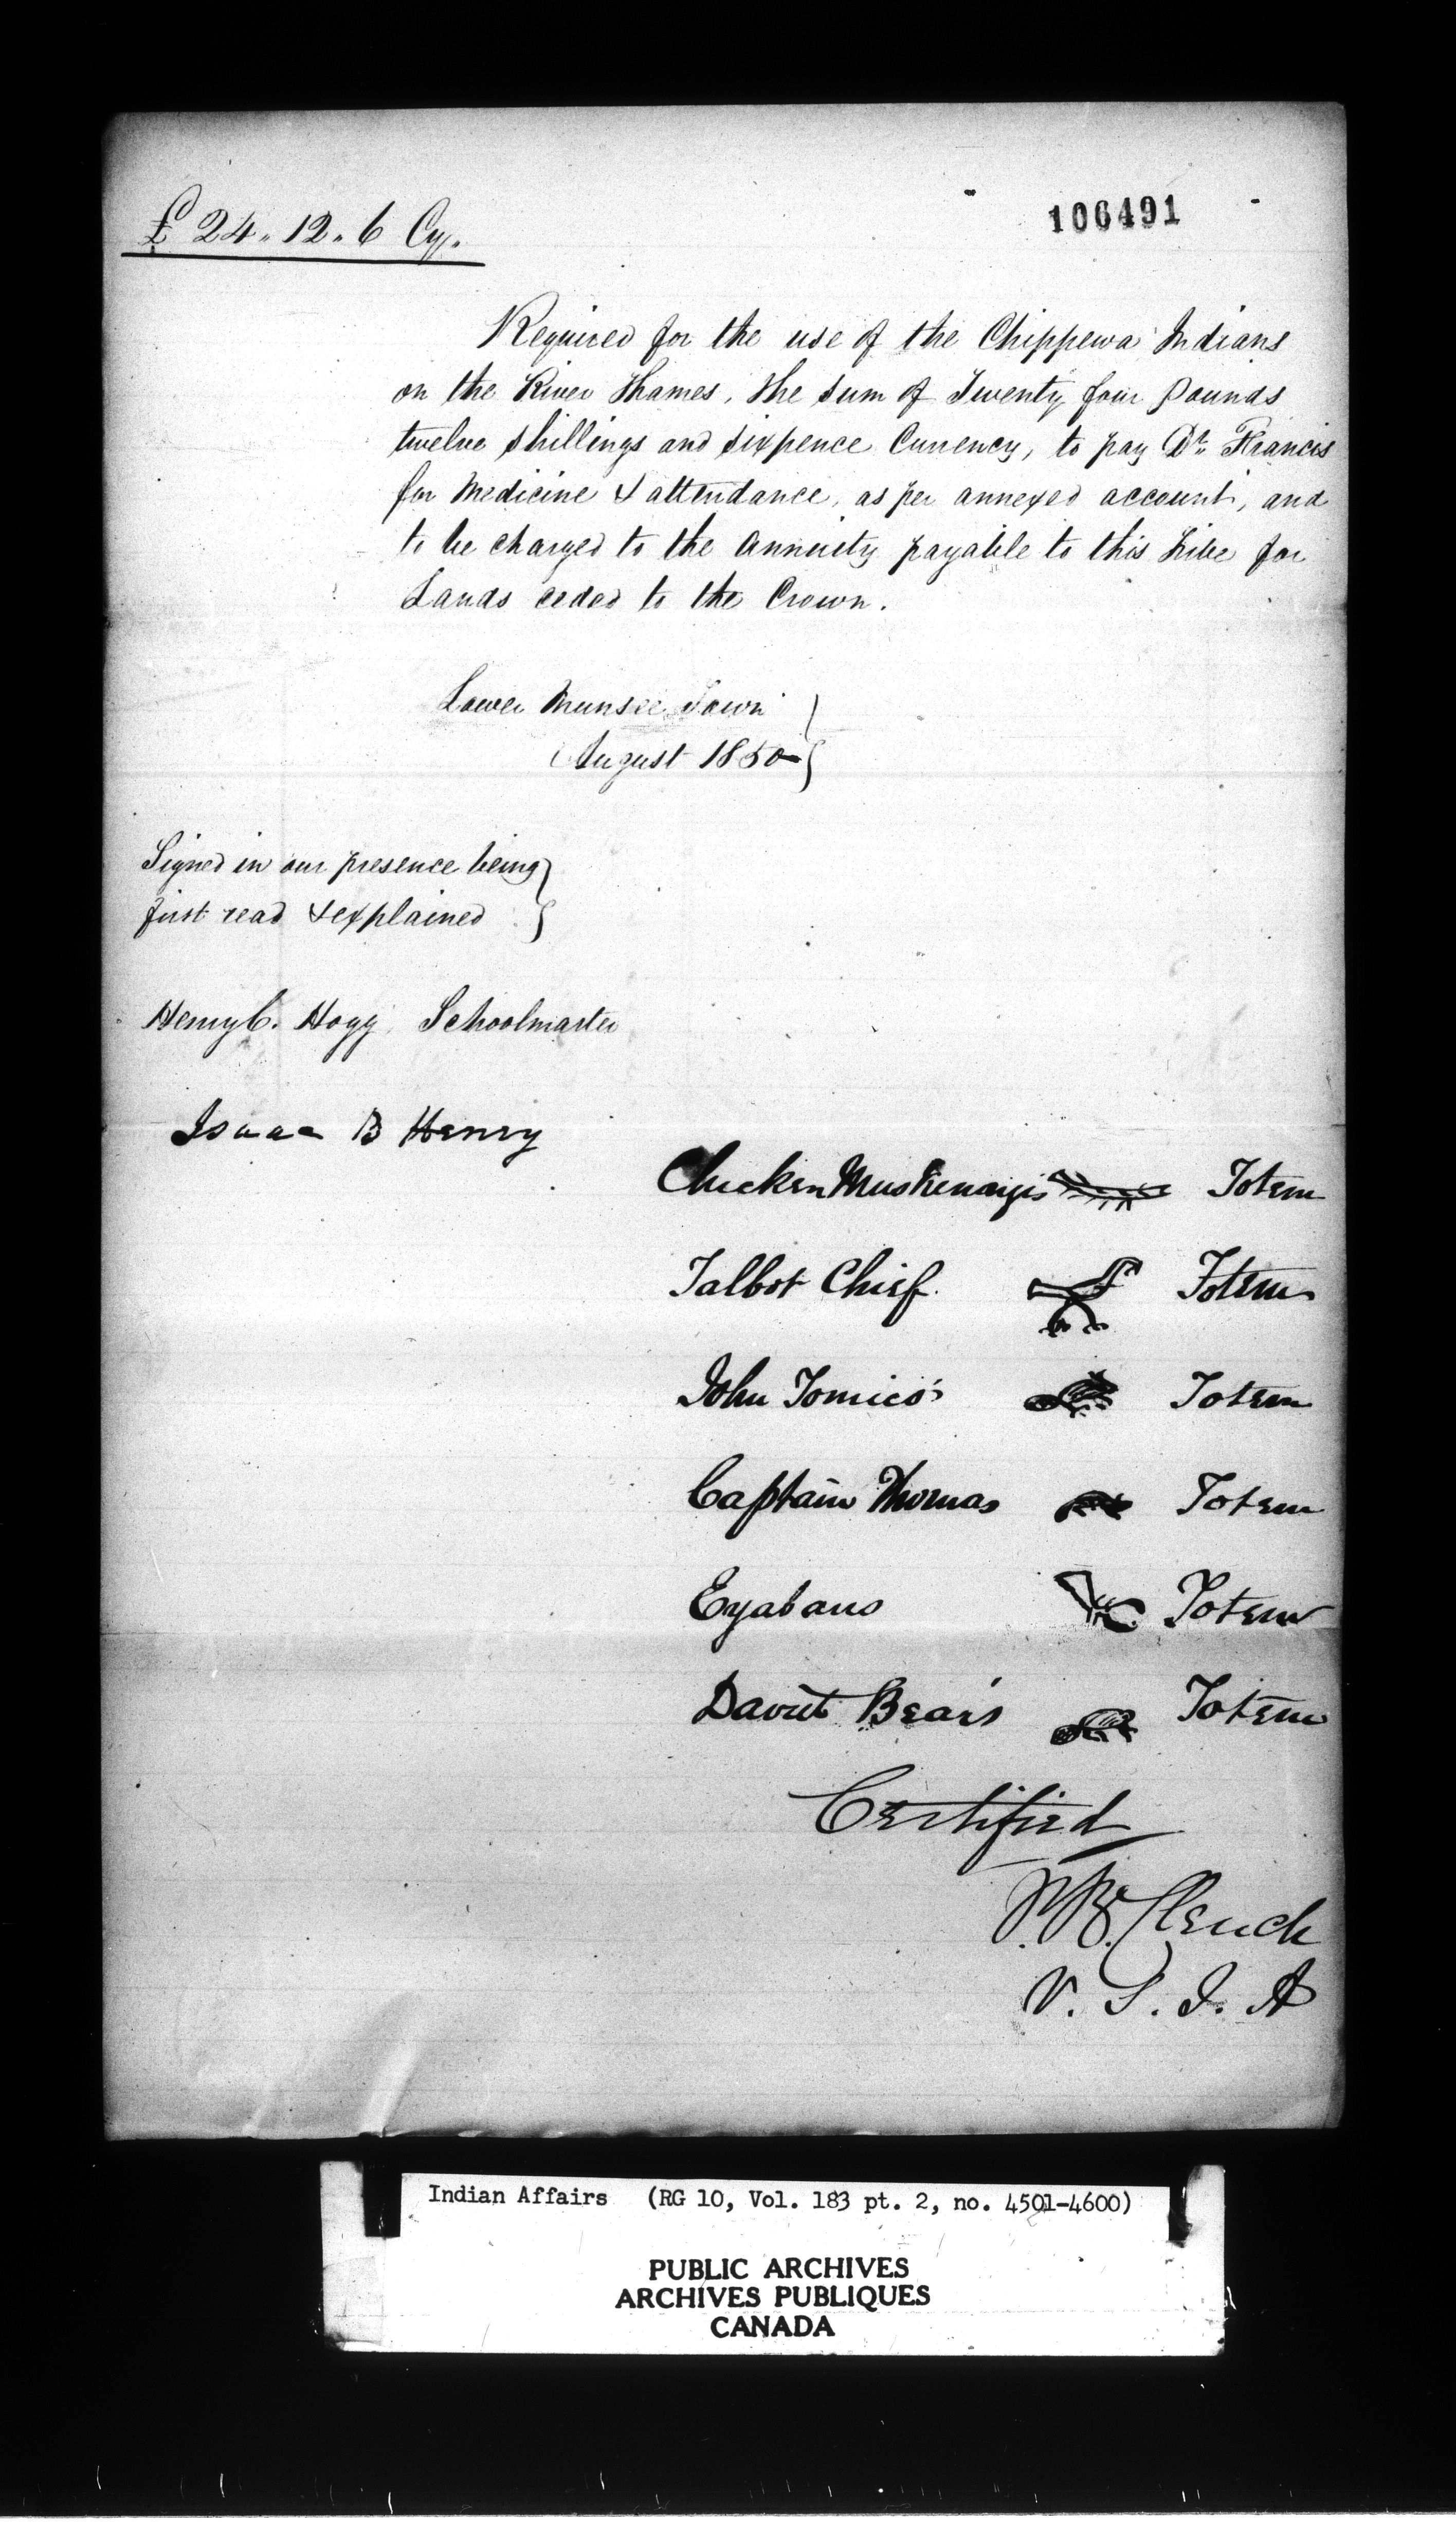 £ 24. 12. 6 Cy.
106491
Required for the use of the Chippewa Indians
on the River Thames, the sum of Twenty four pounds
twelve shillings and sixpence Currency, to pay Dr. Francis
for Medicine & attendance, as per annexed account, and
to be charged to the Annuity payable to this Tribe for
Lands ceded to the Crown.
Lower Munsee Town
August 1850
Signed in our presence being
first read & explained
Henry C. Hogg, Schoolmaster
Isaac B Henry
Chicken Totem
Talbot Chief Totem
John Tomico's Totem
Captain Thomas Totem
Totem
David Bear's Totem
Certified
J. B. Clench
V. S. I. A
Indian Affairs (RG 10, Vol. 183 pt. 2, no. 4501-4600)
PUBLIC ARCHIVES
ARCHIVES PUBLIQUES
CANADA